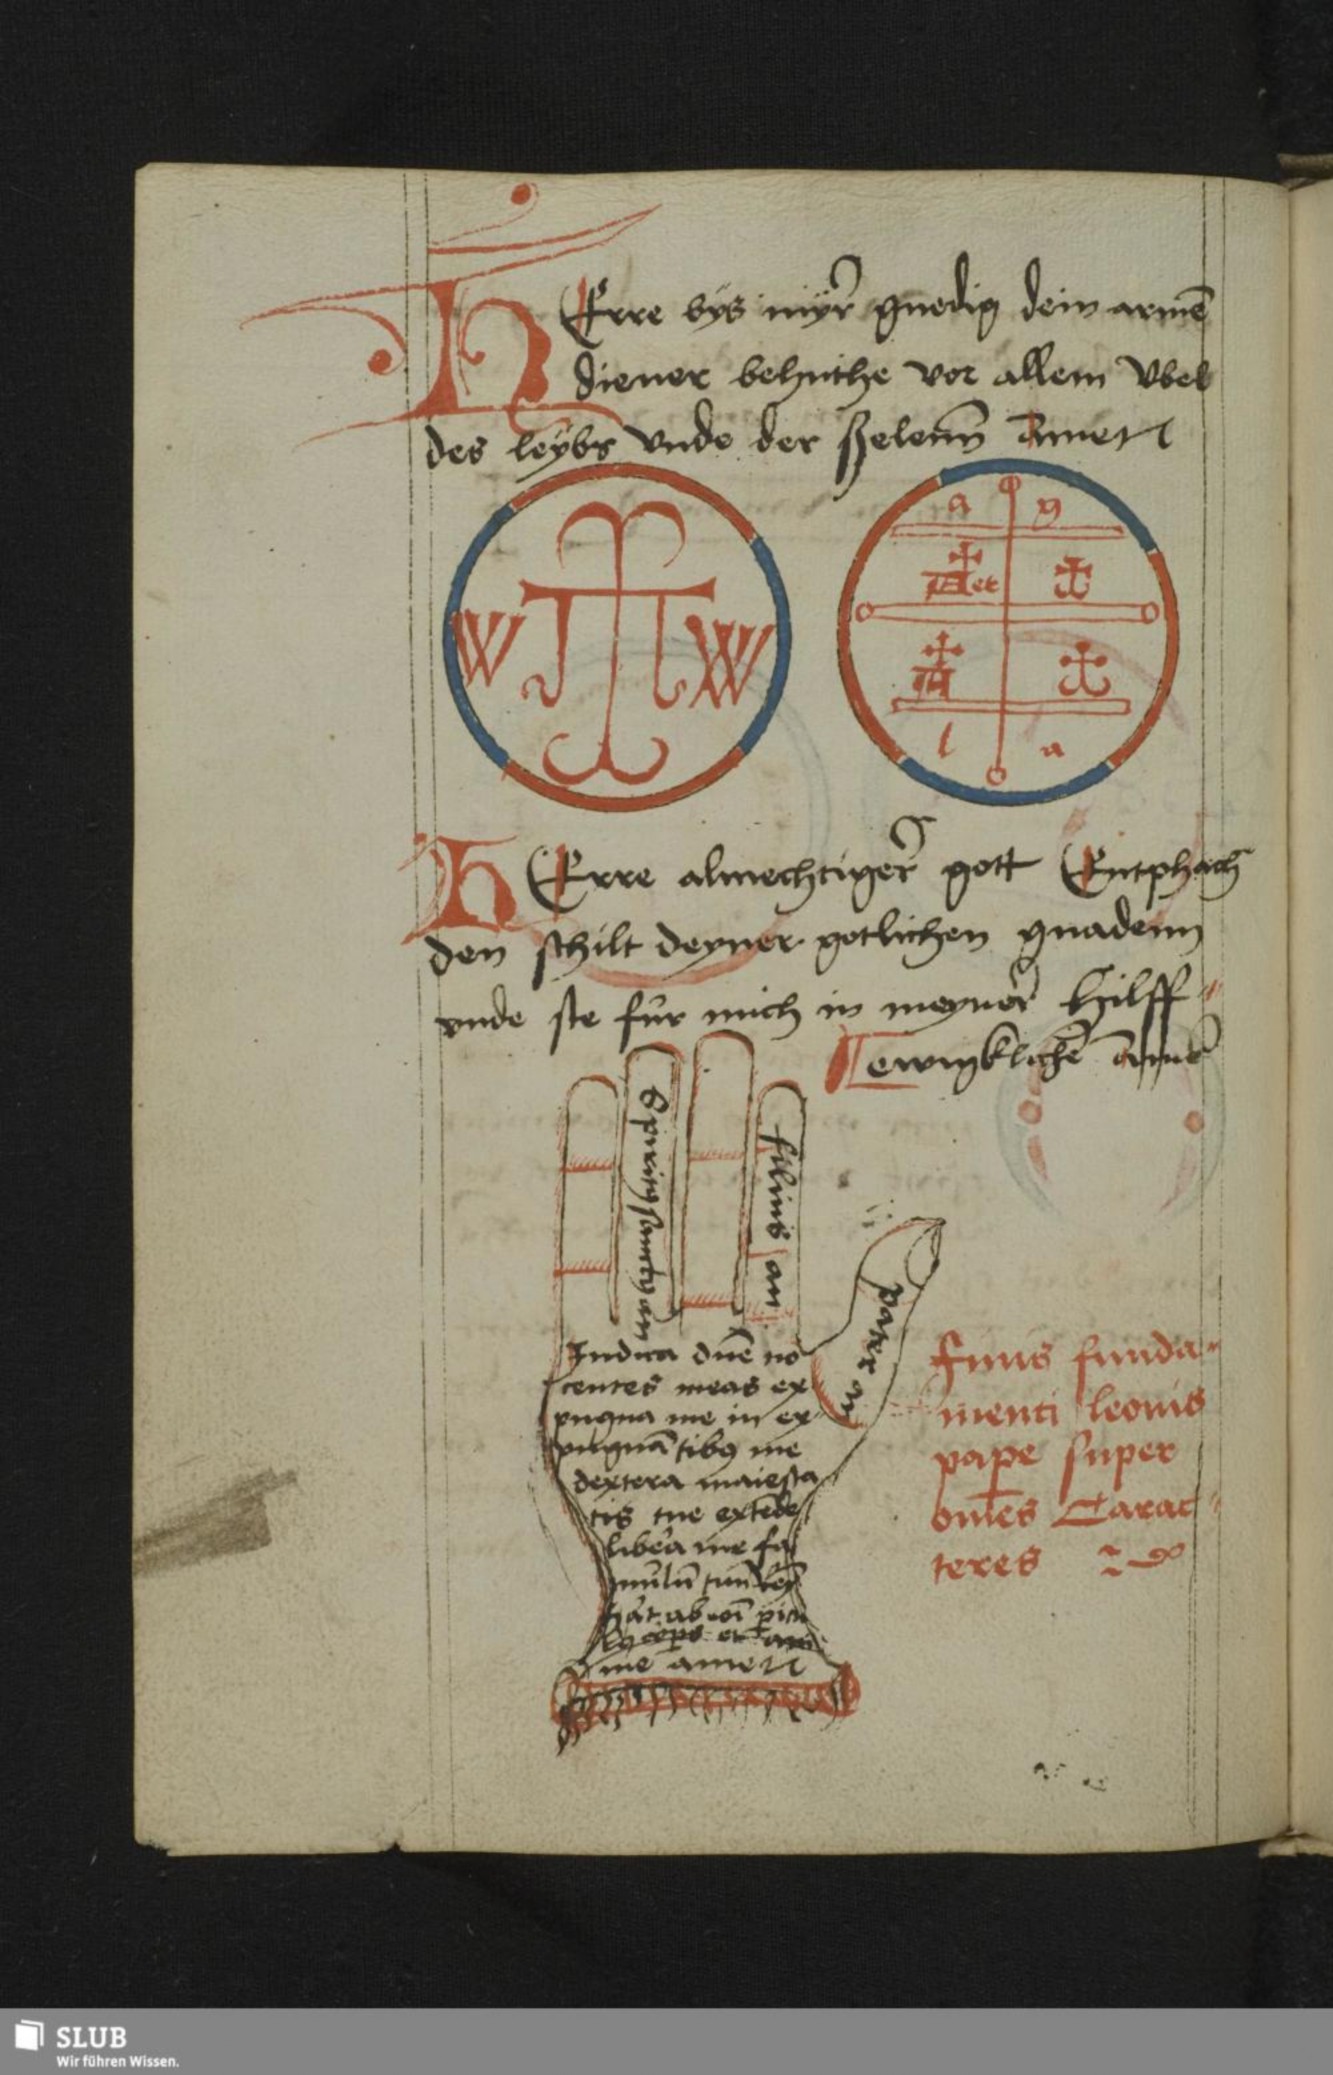 HErre bÿs mÿr gnedig dein armē
diener behuthe vor allem vbel
des leÿbs vnde der ßelenn Amen
W W
a g
et
l a
HErre almechtiger gott Entphach
den schilt deyner gotlichen gnadenn
vnde ste fur mich in meyner hilff
ewigklichē Amē
Spiritꝰ sanctꝰ an
filius an
pater an
Iudica dn̄e no
centes meas ex
pugna me in ex
pugnātibꝰ me
dextera maiesta
tis tue extēde
libera me fa
mulū tuū
me amen
finis funda-
menti leonis
pape super
om̄es Carac-
teres
SLUB
Wir führen Wissen.